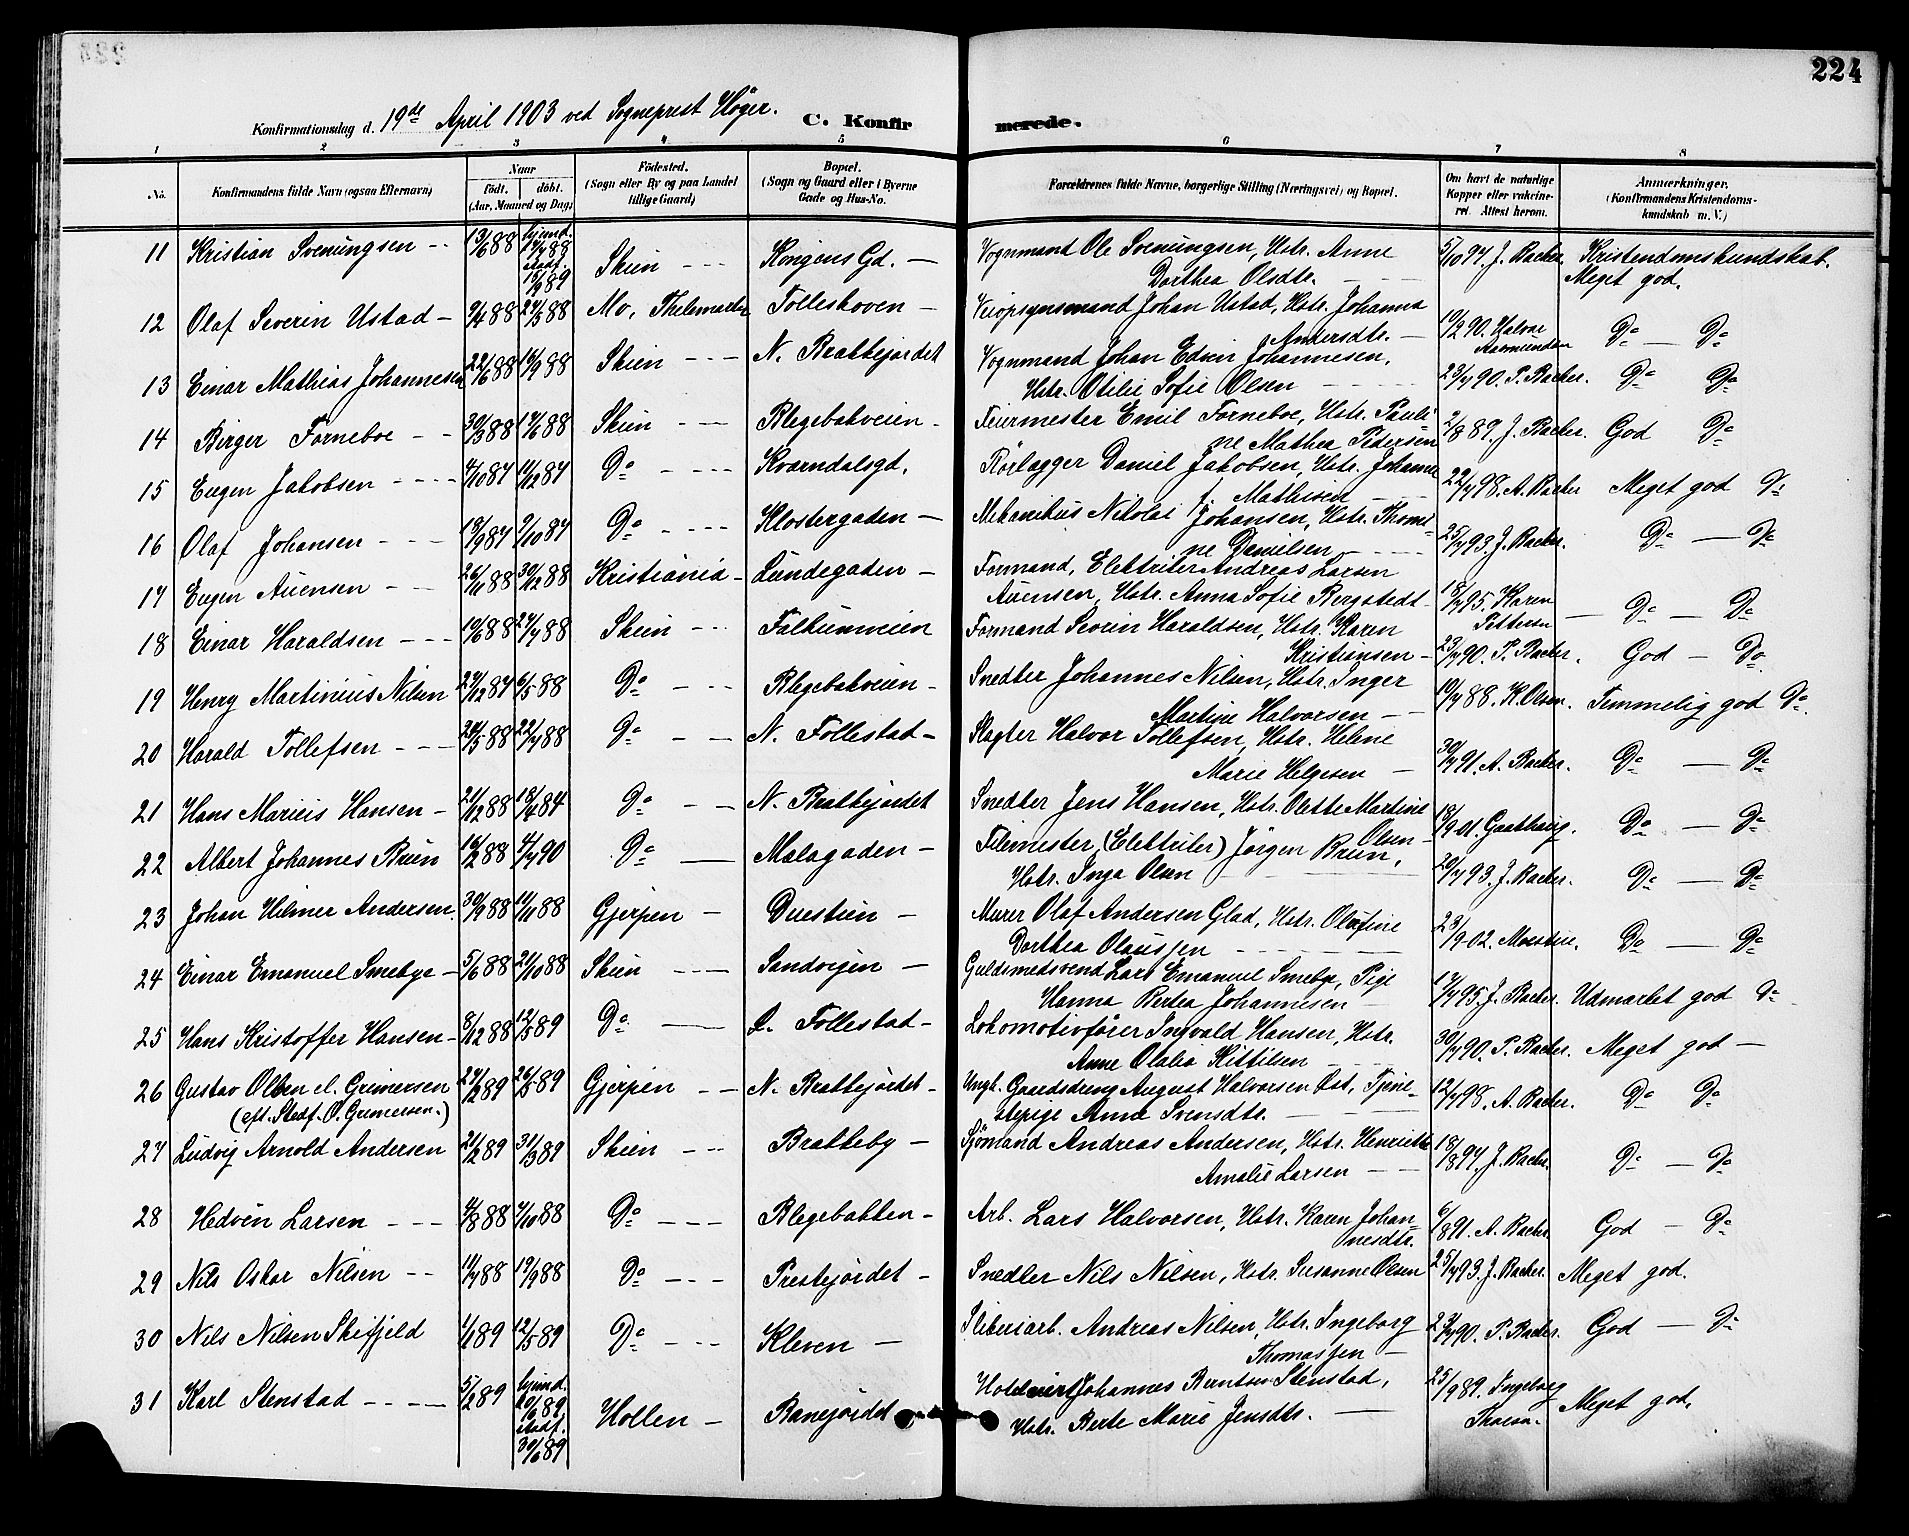 224
Konfirmationsdag d. 19de April 1903 ved Sogneprest Höyer. C. Konfirmerede.
1 2 3 4 5 6 7 8
No. Konfirmandens fulde Navn (ogsaa Efternavn) Naar født. døbt. (Aar, Maaned og Dag) Födested. (Sogn eller By og paa Landet tillige Gaard) Bopæl. (Sogn og Gaard eller i Byerne Gade og Hus-No. Forældrenes fulde Navne, borgerlige Stilling (Næringsvei) og Bopæl. Om havt de naturlige Kopper eller vakcineret. Attest herom. Anmærkninger. (Konfirmandens Kristendomskundskab m. V.)
11 Kristian Svenungsen 13/6 88 hjemd. 14/7 88 stadf. 15/9 89 Skien Kongens Gd. Vognmand Ole Svenungsen, Hstr. Anne Dorthea Olsdtr. 5/10 97. J. Backer. Kristendomskundskab. Meget god.
12 Olaf Severin Ustad 9/4 88 27/5 88 Mo, Thelemarken Folleshoven Veiopsynsmand Johan Ustad, Hstr. Johanna Andersdtr. 19/2 90. Halvor Rasmussen Do Do
13 Einar Mathias Johannesen 22/6 88 16/9 88 Skien N. Brattejordet Vognmand Johan Edvin Johannesen, Hstr. Otilie Sofie Olsen 23/7 90. P. Backer. Do Do
14 Birger Forneboe 30/3 88 17/6 88 Skien Blegebakveien Feiermester Emil Forneboe, Hstr. Pauline Mathea Pedersen 2/8 89. J. Backer. God Do
15 Eugen Jakobsen 4/10 87 11/12 87 Do Kværndalsgd. Rørlægger Daniel Jakobsen, Hstr. Johanne f. Mathisen 22/7 98. A. Backer Meget god Do
16 Olaf Johansen 19/9 87 9/10 87 Do Klostergaden Mekanikus Nikolai Johansen, Hstr. Thomine Danielsen 25/7 93. J. Backer. Do Do
17 Eugen Auensen 26/11 88 30/12 88 Kristiania Lundegaden Formand, Elektriker Andreas Larsen Auensen, Hstr. Anna Sofie Bergstedt 18/7 95. Karen Petterson Do Do
18 Einar Haraldsen 19/6 88 27/7 88 Skien Falkumveien Formand Severin Haraldsen, Hstr. Karen Kristiansen 23/7 90. P. Backer. God Do
19 Henry Martinius Nilsen 27/12 87 6/5 88 Do Blegebakveien Snedker Johannes Nilsen, Hstr. Inger Martine Halvorsen 19/7 88. K. Olsen. Temmelig god Do
20 Harald Tollefsen 24/5 88 22/7 88 Do N. Follestad Slagter Halvor Tollefsen, Hstr. Helene Marie Helgesen 30/7 91. A. Backer. Do Do
21 Hans Marius Hansen 21/12 88 18/4 84 Do N. Brattejordet Snedker Jens Hansen, Hstr. Olette Martine Olsen 18/9 01. Gaathaug. Do Do
22 Albert Johannes Brun 16/2 88 4/7 90 Do Malagaden Filemester, (Elektriker) Jörgen Brun, Hstr. Inga Olsen 20/7 93. J. Backer. Do Do
23 Johan Hilmer Andersen 30/9 88 11/11 88 Gjerpen Duestien Murer Olaf Andersen Glad, Hstr. Olufine Dorthea Olaussen 23/9 02. Moestue. Do Do
24 Einar Emanuel Smebye 5/6 88 21/10 88 Skien Sandvigen Guldsmedsvend Lars Emanuel Smeby, Pige Hanna Bertea Johannesen 17/7 95. J. Backer. Udmærket god Do
25 Hans Kristoffer Hansen 8/12 88 12/5 89 Do S. Follestad Lokomotivfører Ingvald Hansen, Hstr. Anne Olaba Kittilsen 30/7 90. P. Backer. Meget god
26 Gustav Olsen el. Gunnersen (eft. Stedf. O. Gunnersen.) 27/2 89 26/5 89 Gjerpen N. Brattejordet Ungk. Gaardsdreng August Halvorsen Øst, Tjenestepige Anne Svensdtr. 12/7 98. A. Backer. Do Do
27 Ludvig Arnold Andersen 21/2 89 31/3 89 Skien Bratteby Sjömand Andreas Andersen, Hstr. Henriette Amalie Larsen 18/8 97. J. Backer. Do Do
28 Hedvin Larsen 4/8 88 7/10 88 Do Blegebakken Arb. Lars Halvorsen, Hstr. Karen Johannesdtr. 6/8 91. A. Backer God Do
29 Nils Oskar Nilsen 11/7 88 19/9 88 Do Prestejordet Snedker Nils Nilsen, Hstr. Susanne Olsen 25/7 93. J. Backer. Meget god.
30 Nils Nilsen Skifjeld 1/1 89 12/5 89 Do Kleven Sliberiarb. Andreas Nilsen, Hstr. Ingeborg Thomassen 23/7 90. P. Backer. God Do
31 Karl Stenstad 5/2 89 hjemd. 20/6 89 stadf. 30/6 89 Hollen Banejordet Hotelvært Johannes Berntsen Stenstad, Hstr. Berte Marie Jensdtr. 25/9 89. Ingeborg Thorsen. Meget god.